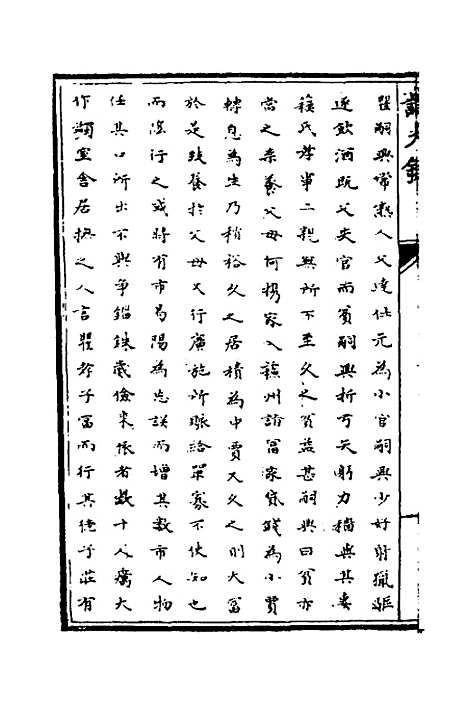 瞿嗣興常熟人父達仕元為小官嗣興少好射獵驅
逐飲酒既父失官而貧嗣興折弓矢躬力穡與其妻
蘇氏孝事二親無所不至久之貧益甚嗣興曰貧亦
當之柰養父母何攜家入蘇州諸富家貸錢為小賈
轉息為生乃稍裕久之居積為中賈又久之則大富
於是致養於父母又行廣施所賑給單寡不使知也
而陰行之或將有市易陽為忘誤而增其數市人物
任其口所出不與爭錙銖歲儉來依者數十人廣大
作類室舍居撫之人言瞿孝子富而行其德子莊有